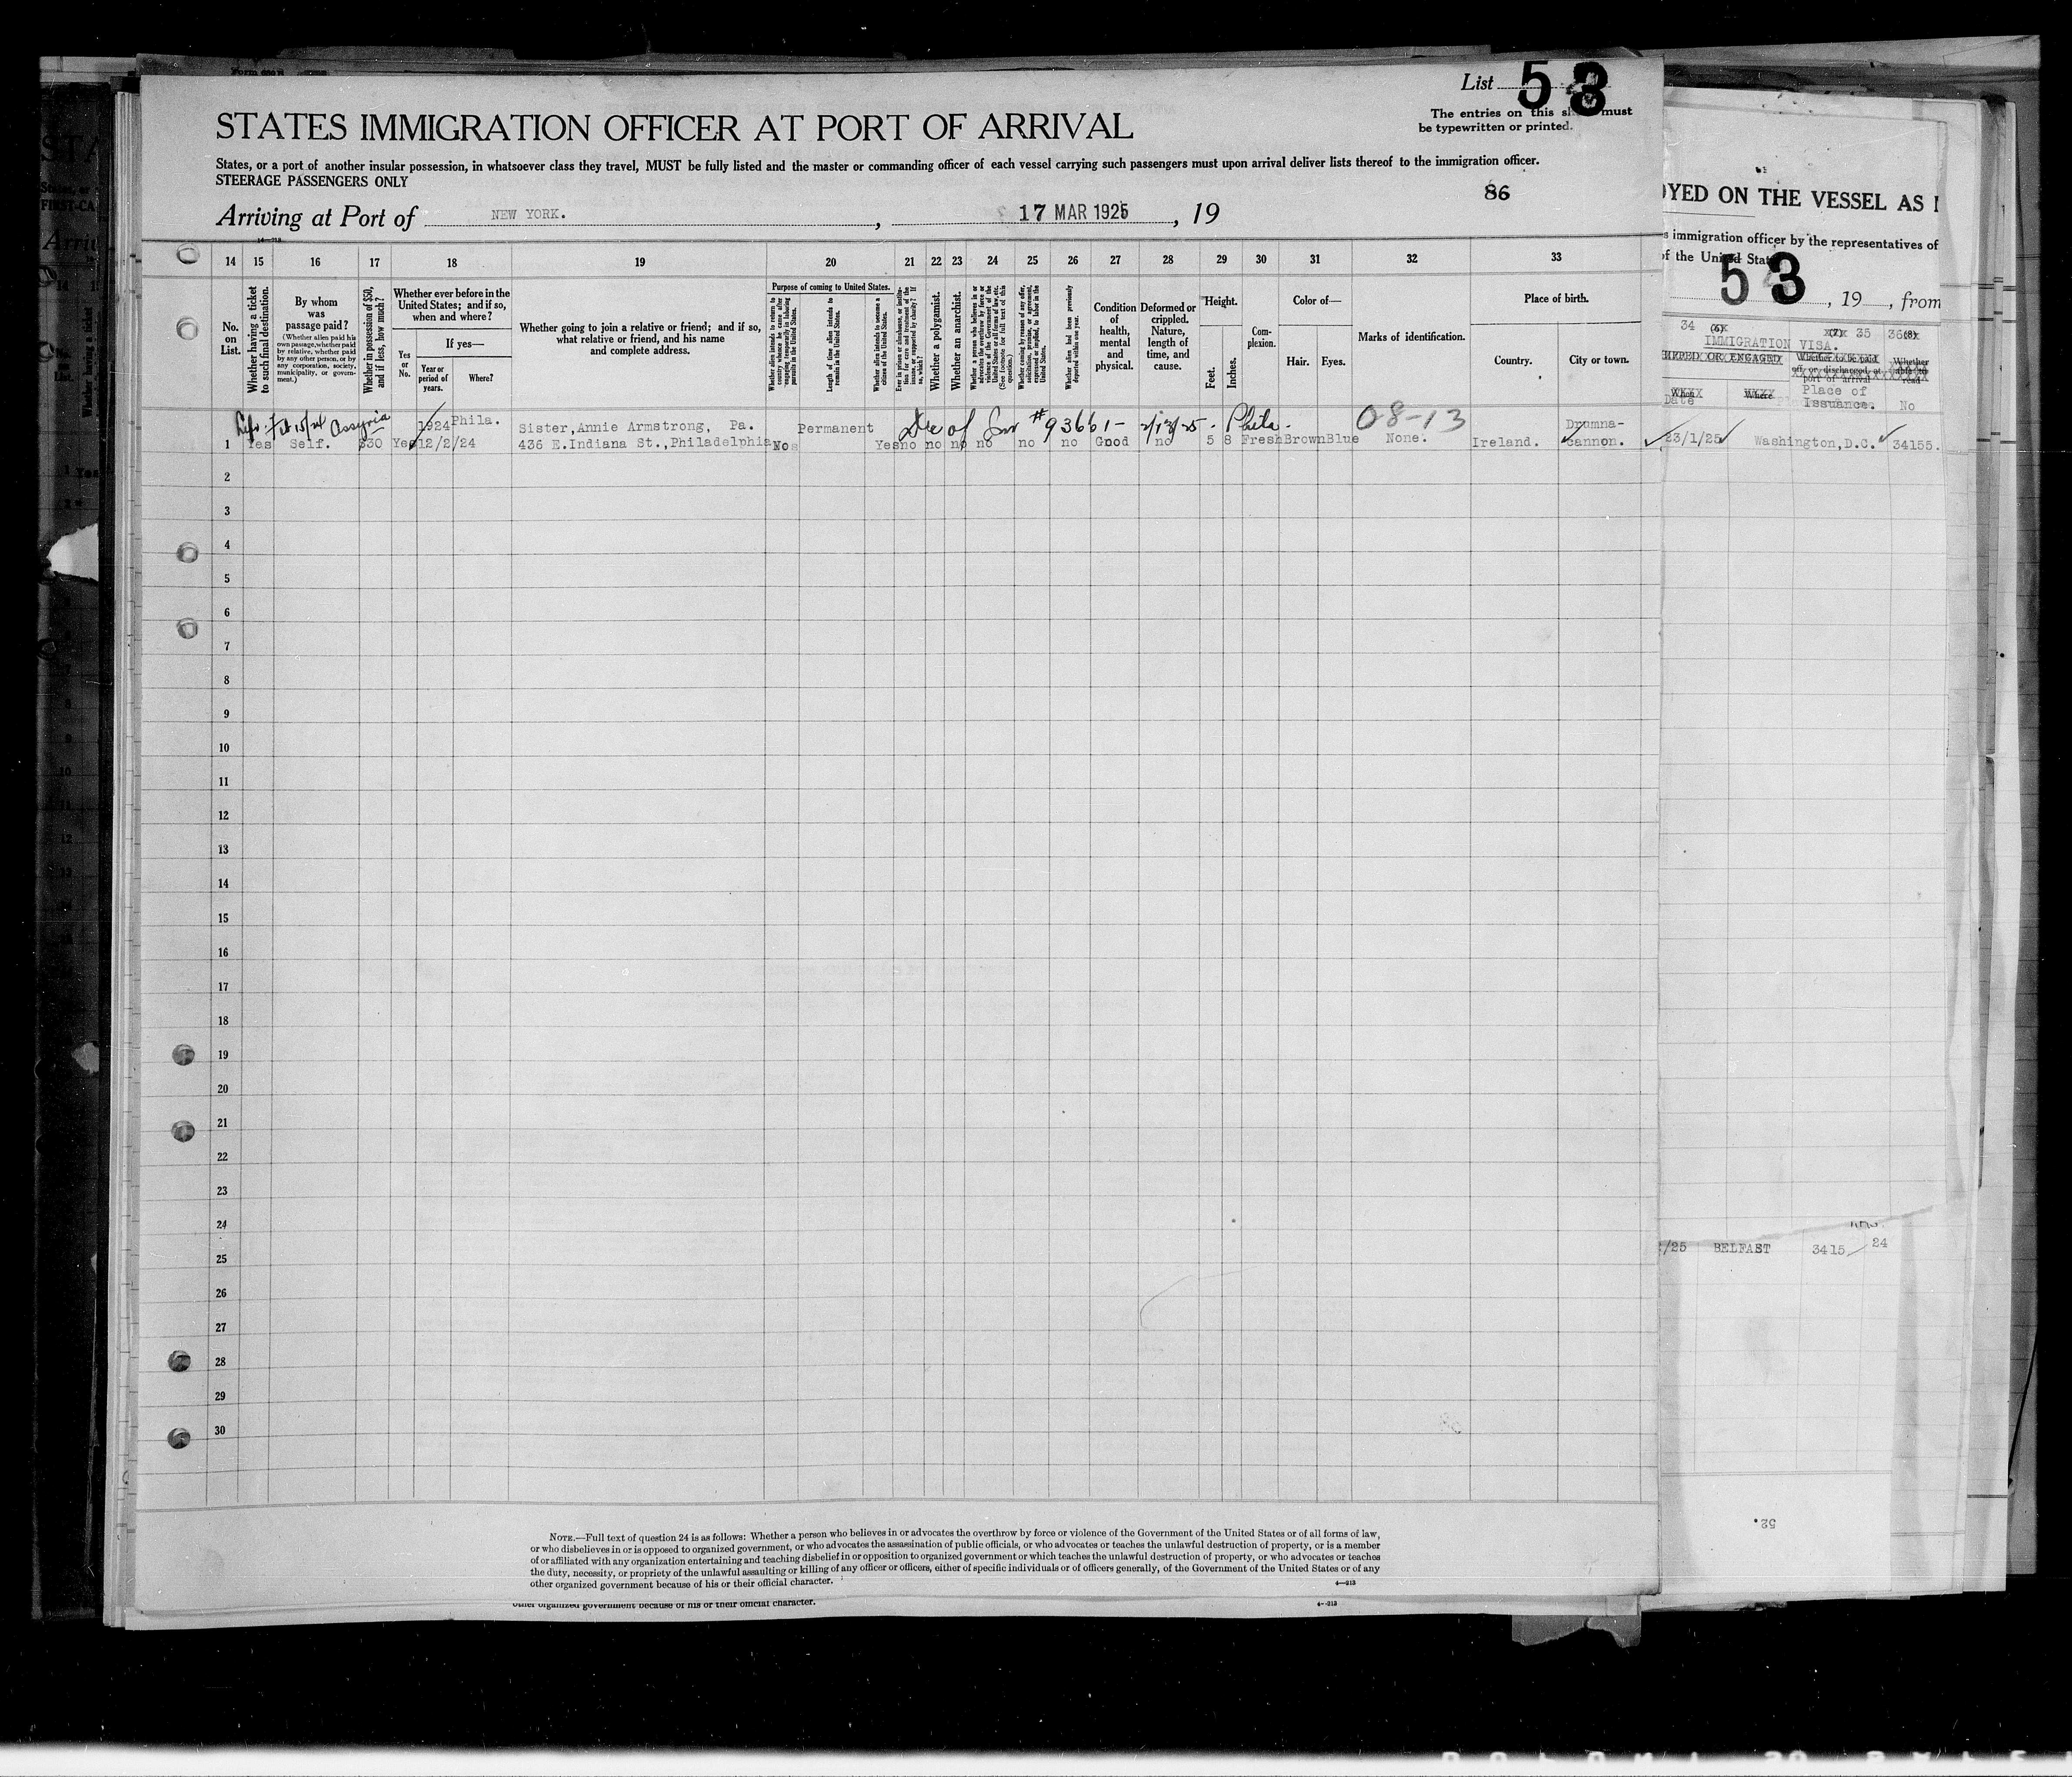 List 53
The entries on this sheet must
be typewritten or printed.
STATES IMMIGRATION OFFICER AT PORT OF ARRIVAL
States, or a port of another insular possession, in whatsoever class they travel, MUST be fully listed and the master or commanding officer of each vessel carrying such passengers must upon arrival deliver lists thereof to the immigration officer.
STEERAGE PASSENGERS ONLY
86
Arriving at Port of NEW YORK. , 17 MAR 1925 , 19
14 15 16 17 18 19 20 21 22 23 24 25 26 27 28 29 30 31 32 33
No. on List.
Whether having a ticket to such final destination.
By whom was passage paid?
(Whether alien paid his own passage, whether paid by relative, whether paid by any other person, or by any corporation, society, municipality, or government.)
Whether in possession of $50, and if less, how much?
Whether ever before in the United States; and if so, when and where?
Yes or No.
If yes—
Year or period of years.
Where?
Whether going to join a relative or friend; and if so, what relative or friend, and his name and complete address.
Purpose of coming to United States.
Whether alien intends to return to country whence he came after engaging temporarily in laboring pursuits in the United States.
Length of time alien intends to remain in the United States.
Whether alien intends to become a citizen of the United States.
Whether a polygamist.
Whether an anarchist.
Condition of health, mental and physical.
Deformed or crippled. Nature, length of time, and cause.
Height.
Feet. Inches.
Complexion.
Color of—
Hair. Eyes.
Marks of identification.
Place of birth.
Country. City or town.
Assyria Dec of #93661- Phila. 08-13
1924 Phila. Sister,Annie Armstrong, Pa. Permanent Drumna-
1 Yes Self. $30 Yes 12/2/24 436 E.Indiana St.,Philadelphia No Yes no no no no no no Good no 5 8 Fresh Brown Blue None. Ireland. cannon.
2
3
4
5
6
7
8
9
10
11
12
13
14
15
16
17
18
19
20
21
22
23
24
25
26
27
28
29
30
NOTE.—Full text of question 24 is as follows: Whether a person who believes in or advocates the overthrow by force or violence of the Government of the United States or of all forms of law,
or who disbelieves in or is opposed to organized government, or who advocates the assassination of public officials, or who advocates or teaches the unlawful destruction of property, or is a member
of or affiliated with any organization entertaining and teaching disbelief in or opposition to organized government or which teaches the unlawful destruction of property, or who advocates or teaches
the duty, necessity, or propriety of the unlawful assaulting or killing of any officer or officers, either of specific individuals or of officers generally, of the Government of the United States or of any
other organized government because of his or their official character.
4—213
other organized government because of his or their official character.
4—213
OYED ON THE VESSEL AS
s immigration officer by the representatives of
of the United States
53 , 19 , from
34 (6) (7) 35 36 (8)
IMMIGRATION VISA.
SHIPPED OR ENGAGED
Whether to be paid off or discharged at port of arrival
Whether able to read
When Where
Date
Place of Issuance.
No
23/1/25 Washington,D.C. 34155.
/25 BELFAST 3415 24
52.